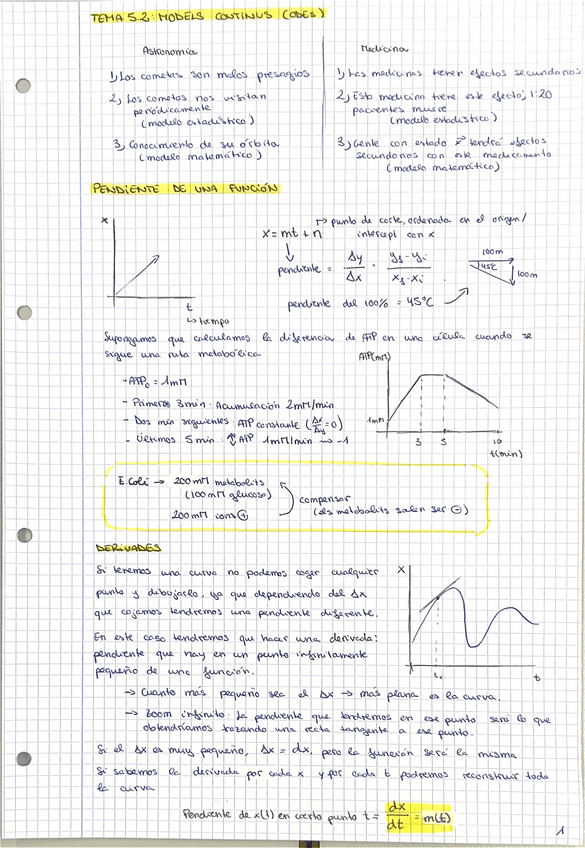 TEMA 5.2: MODELS CONTINUS (ODES)
Astronomía
1) Los cometas son malos presagios
2) Los cometas nos visitan
periódicamente
(modelo estadístico)
3) Conocimiento de su órbita
(modelo matemático)
Medicina
1) Las medicinas tienen efectos secundarios
2) Esta medicina tiene este efecto; 1:20
pacientes muere
(modelo estadístico)
3) Gente con estado x⃗ tendrá efectos
secundarios con este medicamento
(modelo matemático)
PENDIENTE DE UNA FUNCIÓN
x
t
↳ tiempo
↱ punto de corte, ordenada en el origen/
intercept con x
x = mt + n
pendiente = Δy/Δx = (yf - yi)/(xf - xi)
100m
45º
100m
pendiente del 100% = 45ºC
Supongamos que calculamos la diferencia de ATP en una célula cuando se
sigue una ruta metabólica
- ATP₀ = 1mM
- Primeros 3min: Acumulación 2mM/min
- Dos min siguientes: ATP constante (Δx/Δy = 0)
- Últimos 5 min: ATP 1mM/min → -1
ATP(mM)
1mM
3
5
10
t(min)
E.Coli → 200mM metabolits
(100mM glucosa)
200mM ions ⊕
compensar
(els metabolits solen ser ⊖)
DERIVADES
Si tenemos una curva no podemos coger cualquier
punto y dibujarlo, ya que dependiendo del Δx
que cojamos tendremos una pendiente diferente.
En este caso tendremos que hacer una derivada:
pendiente que hay en un punto infinitamente
pequeño de una función.
x
tx
t
→ Cuanto más pequeño sea el Δx → más plana es la curva.
→ Zoom infinito: la pendiente que tendremos en ese punto será lo que
obtendríamos trazando una recta tangente a ese punto.
Si el Δx es muy pequeño, Δx = dx, pero la función será la misma
Si sabemos la derivada por cada x y por cada t podremos reconstruir toda
la curva
Pendiente de x(1) en cierto punto t = dx/dt = m(t)
1